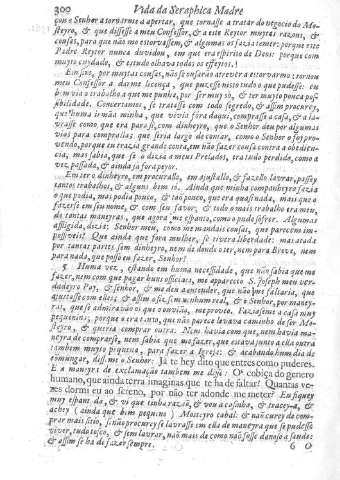 300 Vida da Seraphica Madre
çou o Senhor a tornarme a apertar, que tornasse a tratar do negocio do Mo-
steyro, & que dissesse a meu Confessor, & a este Reytor muytas razoẽs, &
cousas, para que não me estorvassem, & algumas os fazia temer: porque este
Padre Reytor nunca duvidou, em que era espirito de Deos: porque com
muyto cuydado, & estudo olhava todos os effeytos.
Em fim, por muytas cousas, não se ousarão atrever a estorvarmo: tornou
meu Confessor a darme licença, que puzesse nisto tudo o que pudesse: eu
bem via o trabalho a que me punha, por ser muyto só, & ter muyto pouca pos-
sibilidade. Concertamos, se tratasse com todo segredo, & assim procurey,
que huma irmãa minha, que vivia fóra daqui, comprasse a casa, & a la-
vrasse como que era para si, com dinheyro, que o Senhor deu por algumas
vias para compralas: que seria largo de contar, como o Senhor o foy pro-
vendo, porque eu trazia grande conta, em não fazer cousa contra a obedien-
cia, mas sabia, que se o dizia a meus Prelados, era tudo perdido, como a
vez passada, & ainda já fora peyor.
Em ter o dinheyro, em procuralo, em ajustallo, & fazello lavrar, passey
tantos trabalhos, & alguns bem só. Ainda que minha companheyra fazia
o que podia, mas podia pouco, & tão pouco, que era quasi nada, mais que o
fazerse em seu nome, & com seu favor, & todo o mais trabalho era meu,
de tantas maneyras, que agora me espanto, como o pude sofrer. Algumas
afligida, dizia: Senhor meu, como me mandais cousas, que parecem im-
possiveis? Que ainda que fora mulher, se tivera liberdade: mas atada
por tantas partes sem dinheyro, nem de donde o ter, nem para Breve, nem
para nada, que posso eu fazer, Senhor?
5. Huma vez, estando em huma necessidade, que não sabia que me
fazer, nem com que pagar huns officiaes, me appareceo S. Joseph meu ver-
dadeyro Pay, & senhor, & me deu a entender, que não me faltaria, que
ajustasse com elles; & assim o fiz sem nenhum real, & o Senhor, por maney-
ras, que se admiravão os que o ouvião, me proveo. Faziaseme a casa muy
pequenina; porque o era tanto, que não parece levava caminho de ser Mo-
steyro, & queria comprar outra. Nem havia com que, nem havia ma-
neyra de comprarse, nem sabia que me fazer, que estava junto a ella outra
tambem muyto pequena, para fazer a Igreja: & acabando hum dia de
cómungar, disseme o Senhor: Já te hey dito que entres como puderes.
E a maneyra de exclamação tambem me disse: O cobiça do genero
humano, que ainda terra imaginas que te ha de faltar! Quantas ve-
zes dormi eu ao sereno, por não ter adonde me meter? Eu fiquey
muy espantada, & vi que tinha razão, & vou à casinha, & tracey-a, &
achey (ainda que bem pequeno) Mosteyro cabal: & não curey de com-
prar mais sitio, senão procurey se lavrasse em ella de maneyra que se pudesse
viver, tudo tosco, & sem lavrar, não mais de como não fosse danoso a saude:
& assim se ha de fazer sempre. 6 O